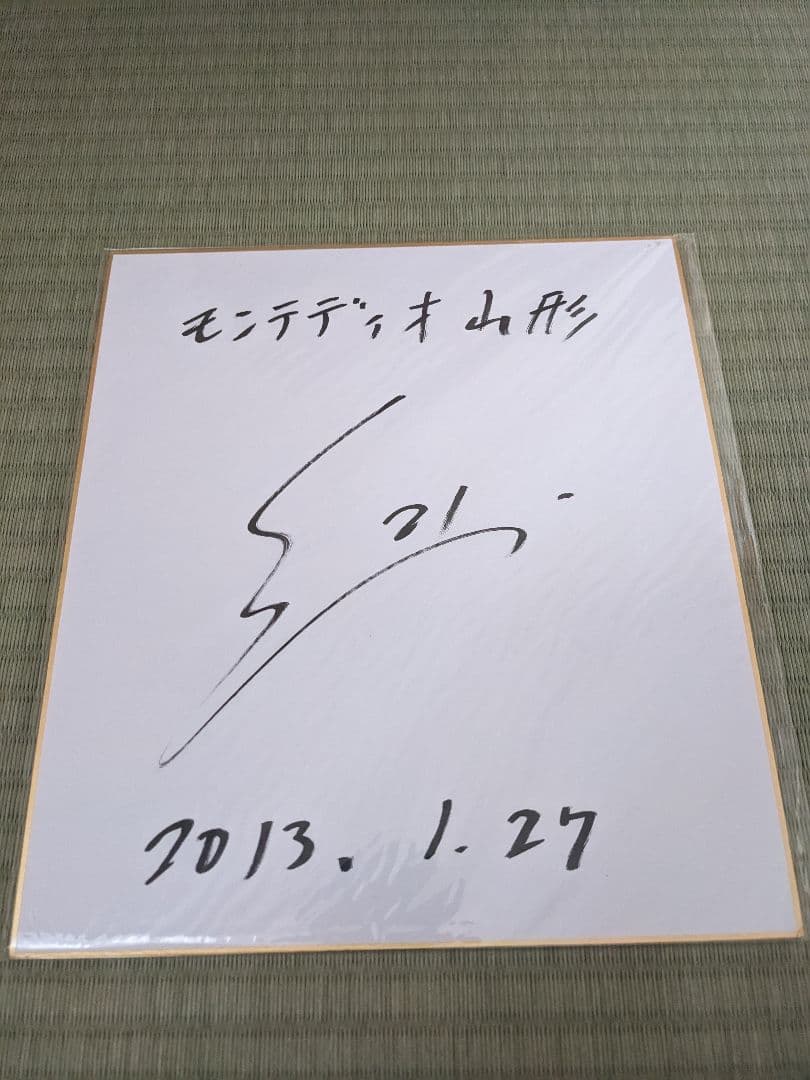 モンテディオ山形
21
2013.1.27